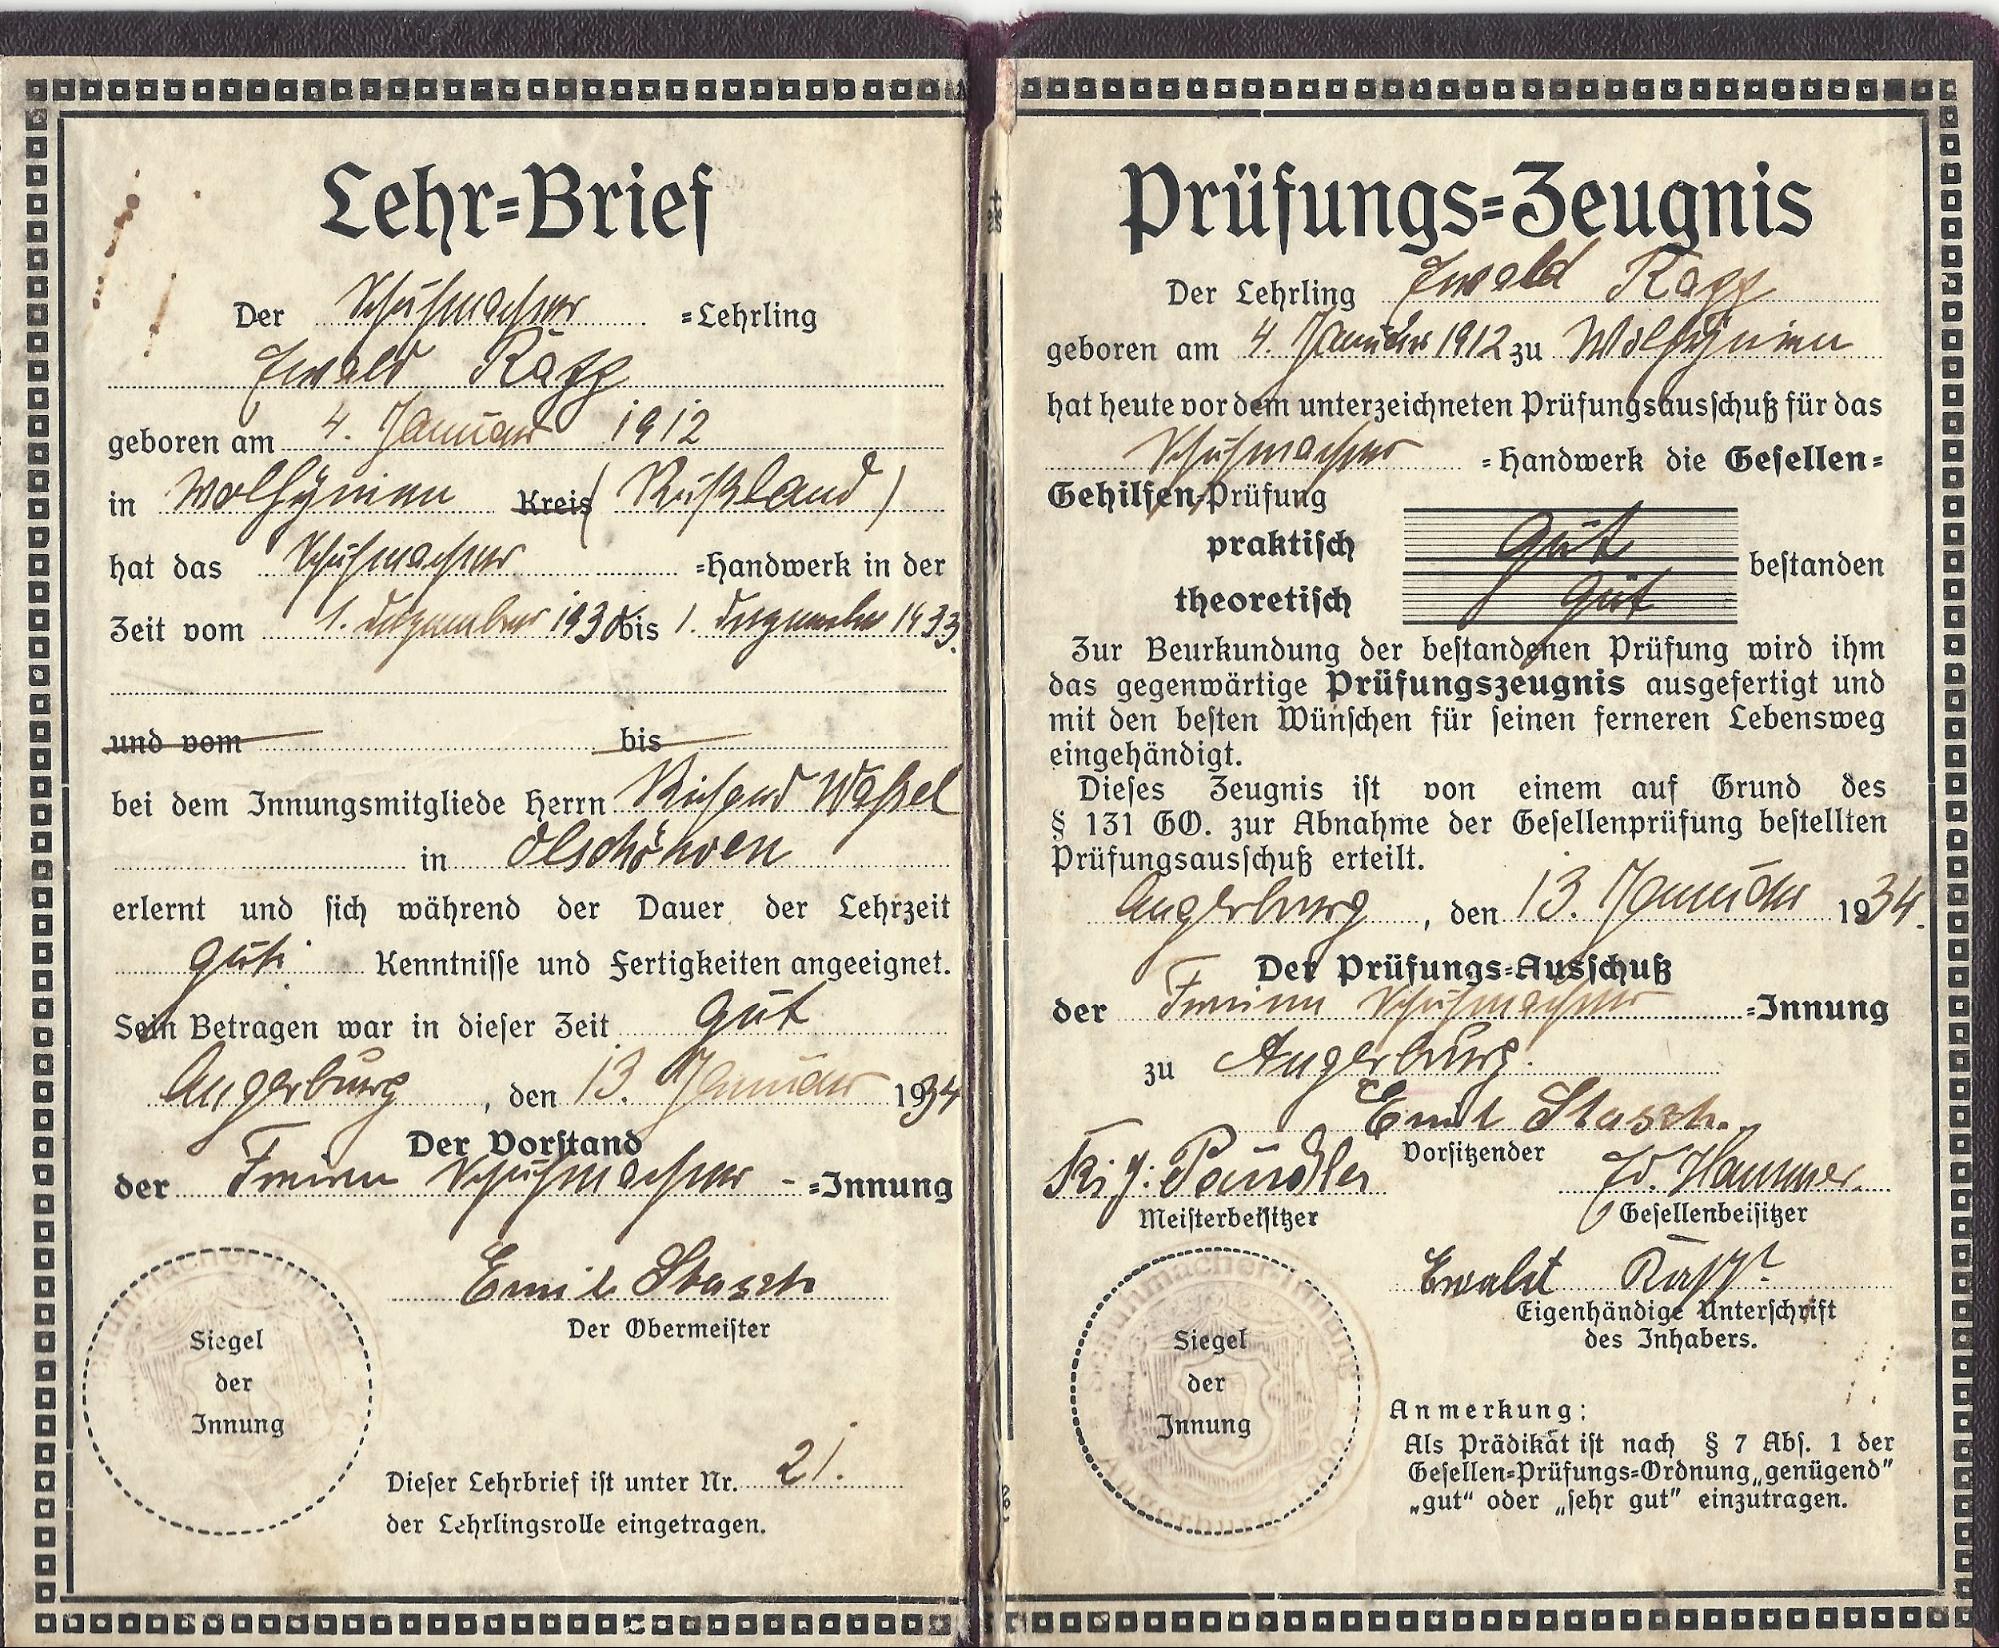 Lehr=Brief
Der Schuhmacher =Lehrling
Ewald Rapp
geboren am 4. Januar 1912
in Wolhynien Kreis (Rußland)
hat das Schuhmacher =Handwerk in der
Zeit vom 1. Dezember 1930 bis 1. Dezember 1933.
und vom bis
bei dem Innungsmitgliede Herrn Richard Waßel
in Olschöwen
erlernt und sich während der Dauer der Lehrzeit
gute Kenntnisse und Fertigkeiten angeeignet.
Sein Betragen war in dieser Zeit gut
Angerburg, den 13. Januar 1934
Der Vorstand
der Freien Schuhmacher - =Innung
Emil Stasch
Der Obermeister
Siegel
der
Innung
Dieser Lehrbrief ist unter Nr. 21.
der Lehrlingsrolle eingetragen.
Prüfungs=Zeugnis
Der Lehrling Ewald Rapp
geboren am 4. Januar 1912 zu Wolhynien
hat heute vor dem unterzeichneten Prüfungsausschuß für das
Schuhmacher =Handwerk die Gesellen=
Gehilfen=Prüfung
praktisch gut
bestanden
theoretisch gut
Zur Beurkundung der bestandenen Prüfung wird ihm
das gegenwärtige Prüfungszeugnis ausgefertigt und
mit den besten Wünschen für seinen ferneren Lebensweg
eingehändigt.
Dieses Zeugnis ist von einem auf Grund des
§ 131 GO. zur Abnahme der Gesellenprüfung bestellten
Prüfungsausschuß erteilt.
Angerburg, den 13. Januar 1934.
Der Prüfungs=Ausschuß
der Freien Schuhmacher =Innung
zu Angerburg.
Emil Stasch.
Vorsitzender
Meisterbeisitzer
Hammer.
Gesellenbeisitzer
Ewald Rapp.
Eigenhändige Unterschrift
des Inhabers.
Schuhmacher-Innung
Angerburg
Siegel
der
Innung
Anmerkung:
Als Prädikat ist nach § 7 Abs. 1 der
Gesellen=Prüfungs=Ordnung „genügend"
„gut" oder „sehr gut" einzutragen.